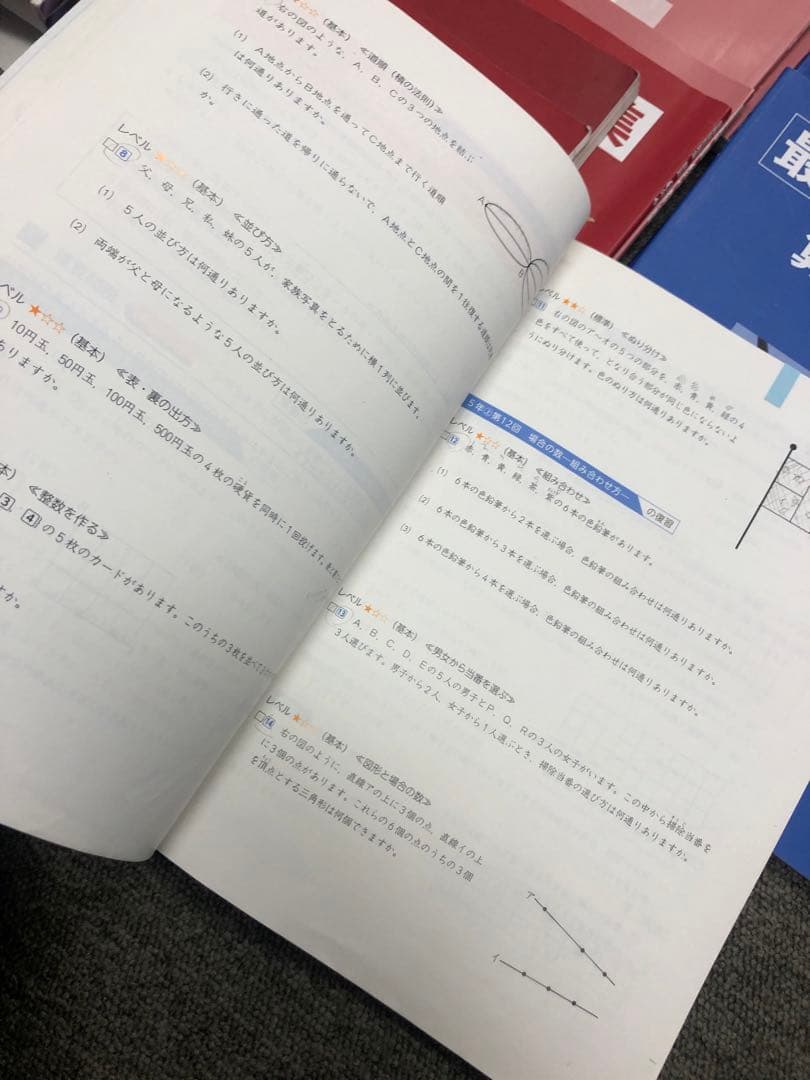 ☆☆ (基本) ≪道順(積の法則)≫
右の図のような、A、B、Cの3つの地点を結ぶ
道があります。
(1) A地点からB地点を通ってC地点まで行く道順
は何通りありますか。
(2) 行きに通った道を帰りに通らないで、A地点とC地点の間を1往復する
か。
A
B
レベル★☆☆ (基本) ≪並び方≫
8 父、母、兄、私、妹の5人が、家族写真をとるために横1列に並びます。
(1) 5人の並び方は何通りありますか。
(2) 両端が父と母になるような5人の並び方は何通りありますか。
ベル★☆☆ (基本) ≪表・裏の出方≫
10円玉、50円玉、100円玉、500円玉の4枚の硬貨を同時に1回投げます。
ありますか。
本) ≪整数を作る≫
3、4の5枚のカードがあります。このうちの3枚を並べて
すか。
レベル★★☆ (標準) ≪ぬり分け≫
11 右の図のア〜オの5つの部分を、赤、青、黄、緑の4
色をすべて使って、となり合う部分が同じ色にならないよ
うにぬり分けます。色のぬり方は何通りありますか。
5年 第12回 場合の数―組み合わせ方― の復習
レベル★☆☆ (基本) ≪組み合わせ≫
12 赤、青、黄、緑、茶、紫の6本の色鉛筆があります。
(1) 6本の色鉛筆から2本を選ぶ場合、色鉛筆の組み合わせは何通りありますか。
(2) 6本の色鉛筆から3本を選ぶ場合、色鉛筆の組み合わせは何通りありますか。
(3) 6本の色鉛筆から4本を選ぶ場合、色鉛筆の組み合わせは何通りありますか。
レベル★☆☆ (基本) ≪男女から当番を選ぶ≫
13 A、B、C、D、Eの5人の男子とP、Q、Rの3人の女子がいます。この中から掃除当番を
3人選びます。男子から2人、女子から1人選ぶとき、掃除当番の選び方は何通りありますか。
レベル★☆☆ (基本) ≪図形と場合の数≫
14 右の図のように、直線アの上に3個の点、直線イの上
に3個の点があります。これらの6個の点のうちの3個
を頂点とする三角形は何個できますか。
ア
イ
最